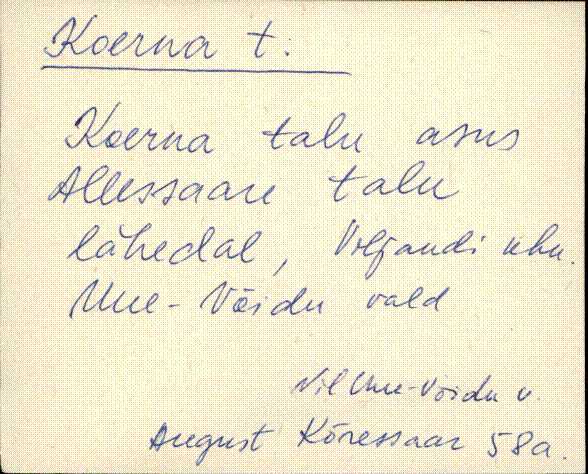 Koerna t.
Koerna talu asus
Allessaare talu
lähedal, Viljandi khn.
Uue-Võidu vald
Vil Uue-Võidu v.
August Kõressaar 58a.